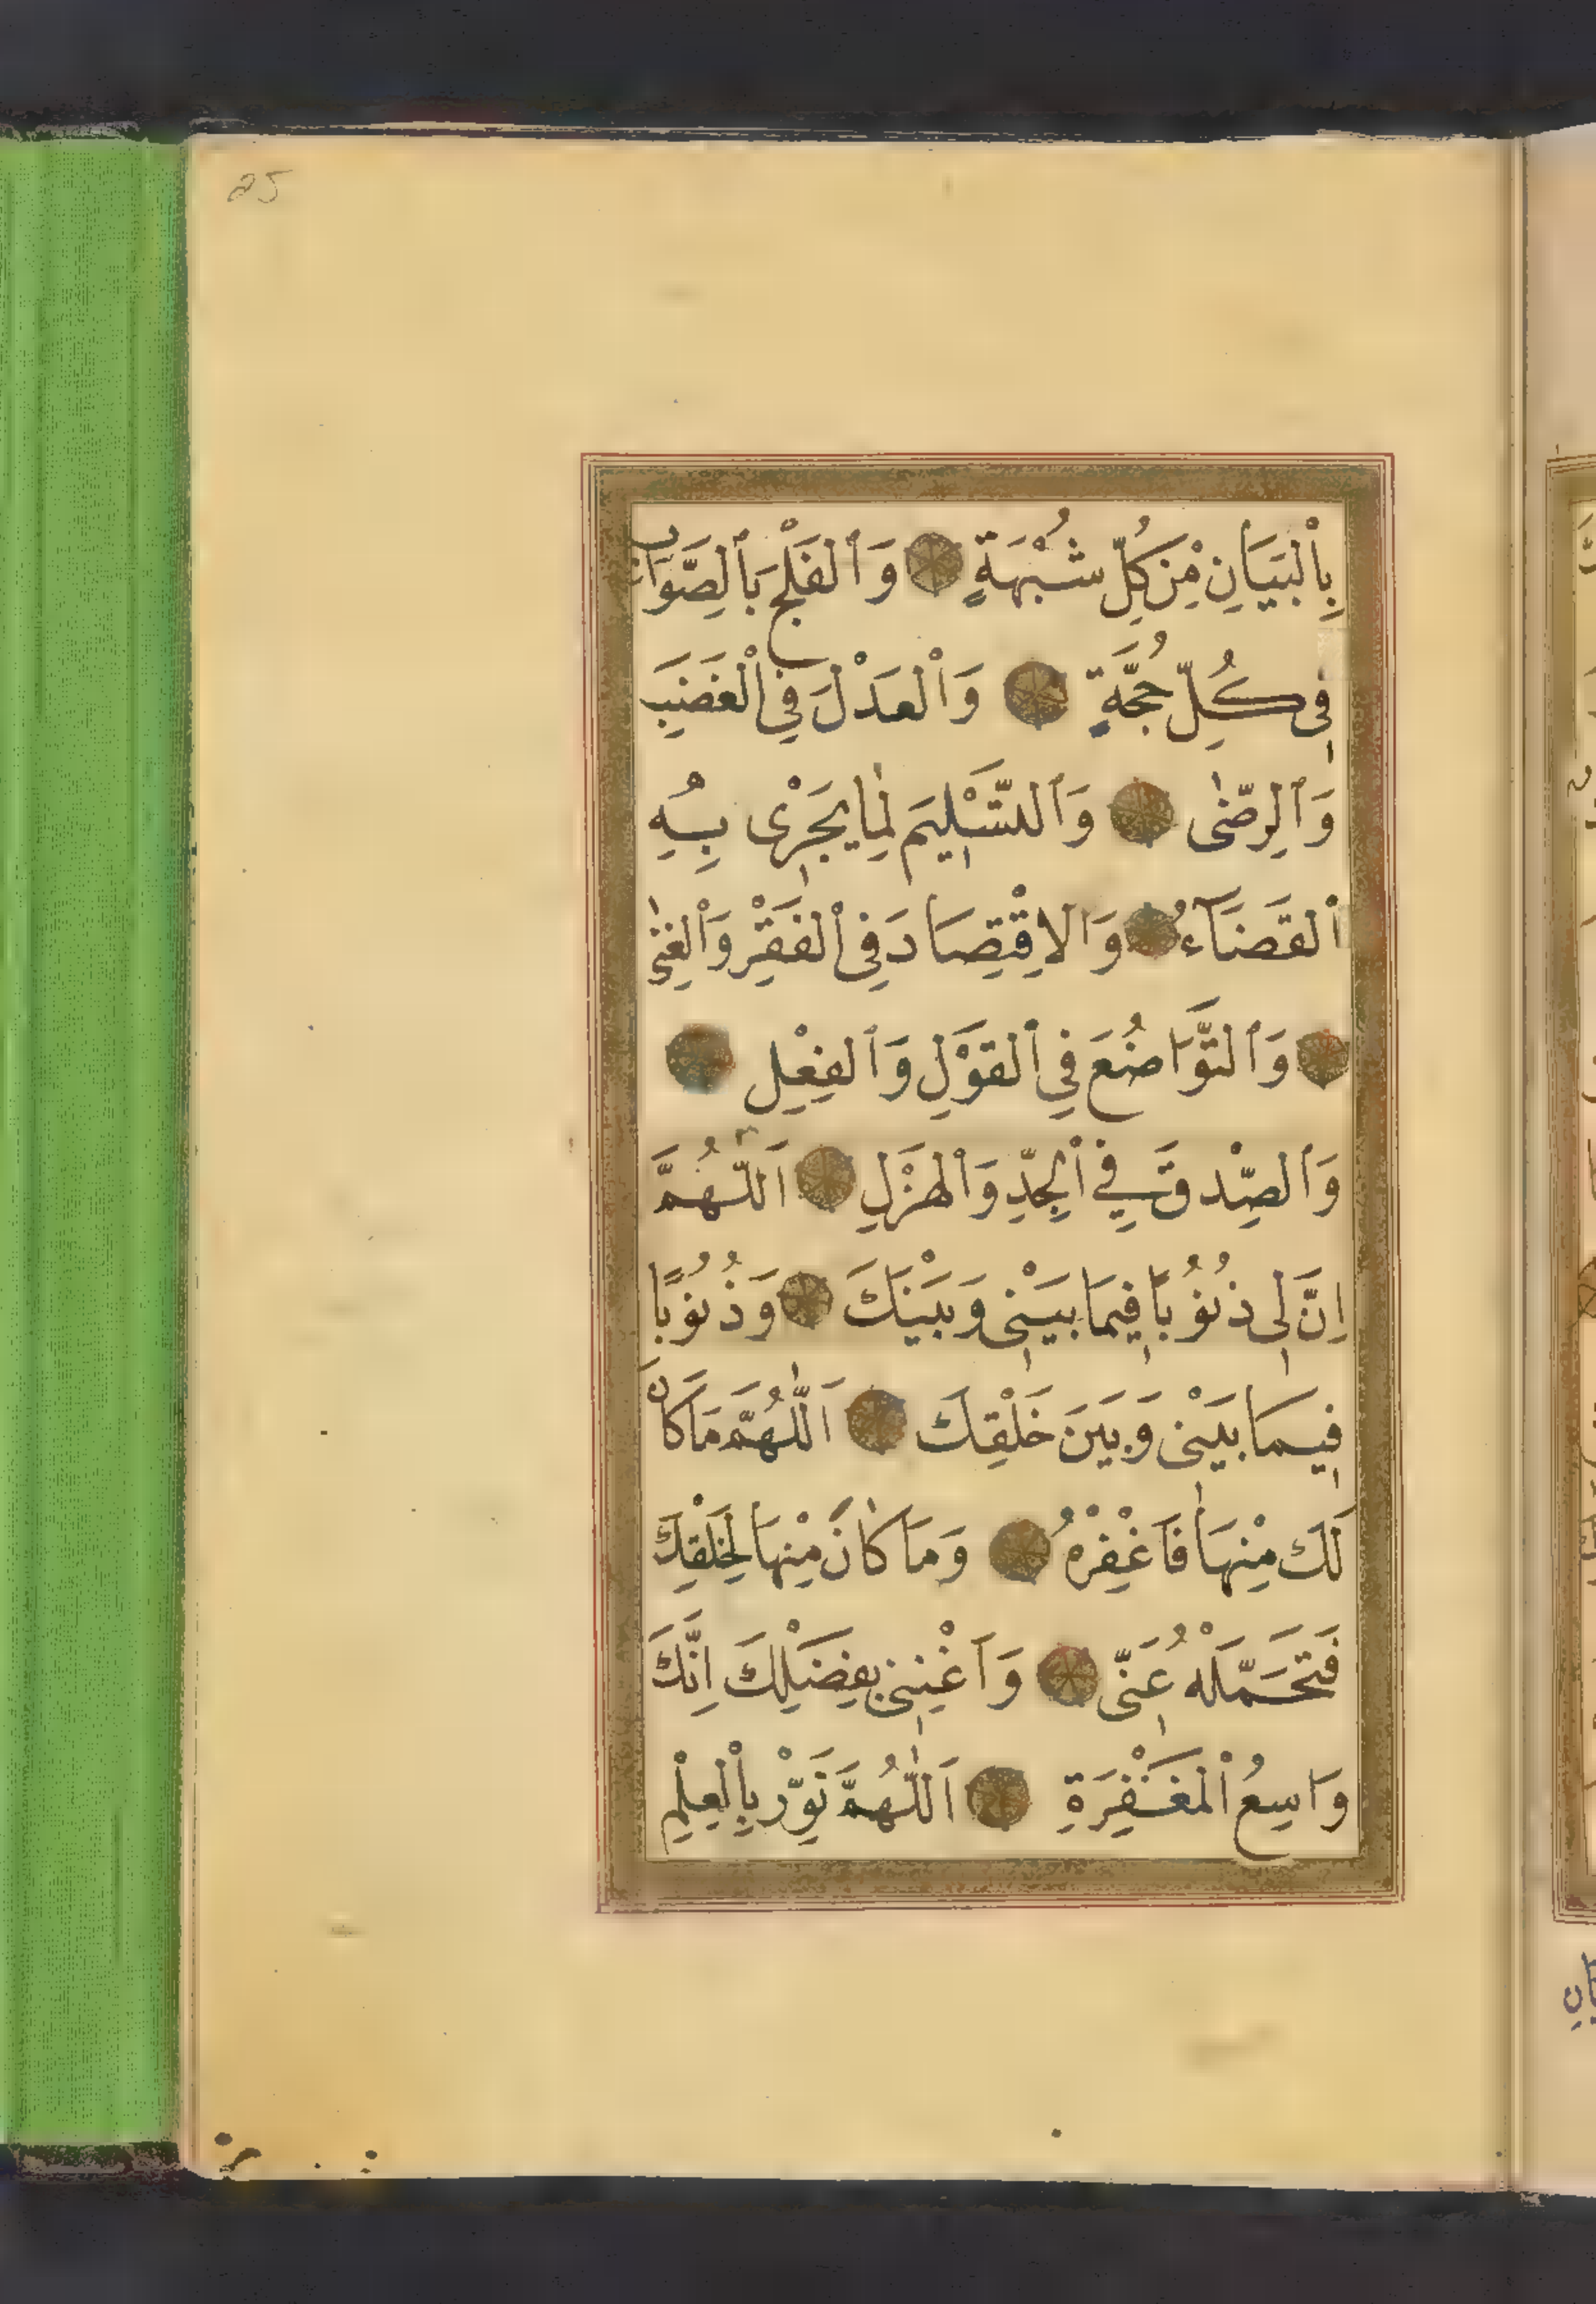 25
بِالْبَيَانِ مِنْ كُلِّ شُبْهَةٍ وَالْفَلْجَ بِالصَّوَابِ
فِى كُلِّ حُجَّةٍ وَالْعَدْلَ فِي الْغَضَبِ
وَالرِّضٰى وَالتَّسْلِيمَ لِمَا يَجْرِى بِهِ
الْقَضَآءُ وَالاِقْتِصَادَ فِى الْفَقْرِ وَالْغِنٰى
وَالتَّوَاضُعَ فِي الْقَوْلِ وَالْفِعْلِ
وَالصِّدْقَ فِي الْجِدِّ وَالْهَزْلِ اَللّٰهُمَّ
اِنَّ لِى ذُنُوُبًا فِيمَا بَيْنِى وَبَيْنَكَ وَذُنُوُبًا
فِيمَا بَيْنِى وَبَيَنَ خَلْقِكَ اَللّٰهُمَّ مَا كَانَ
لَكَ مِنْهَا فَاغْفِرْهُ وَمَا كَانَ مِنْهَا لِخَلْقِكَ
فَتَحَمَّلْهُ عَنِّى وَاَغْنِنِى بِفَضْلِكَ اِنَّكَ
وَاسِعُ الْمَغْفِرَةِ اَللّٰهُمَّ نَوِّرْ بِالْعِلْمِ